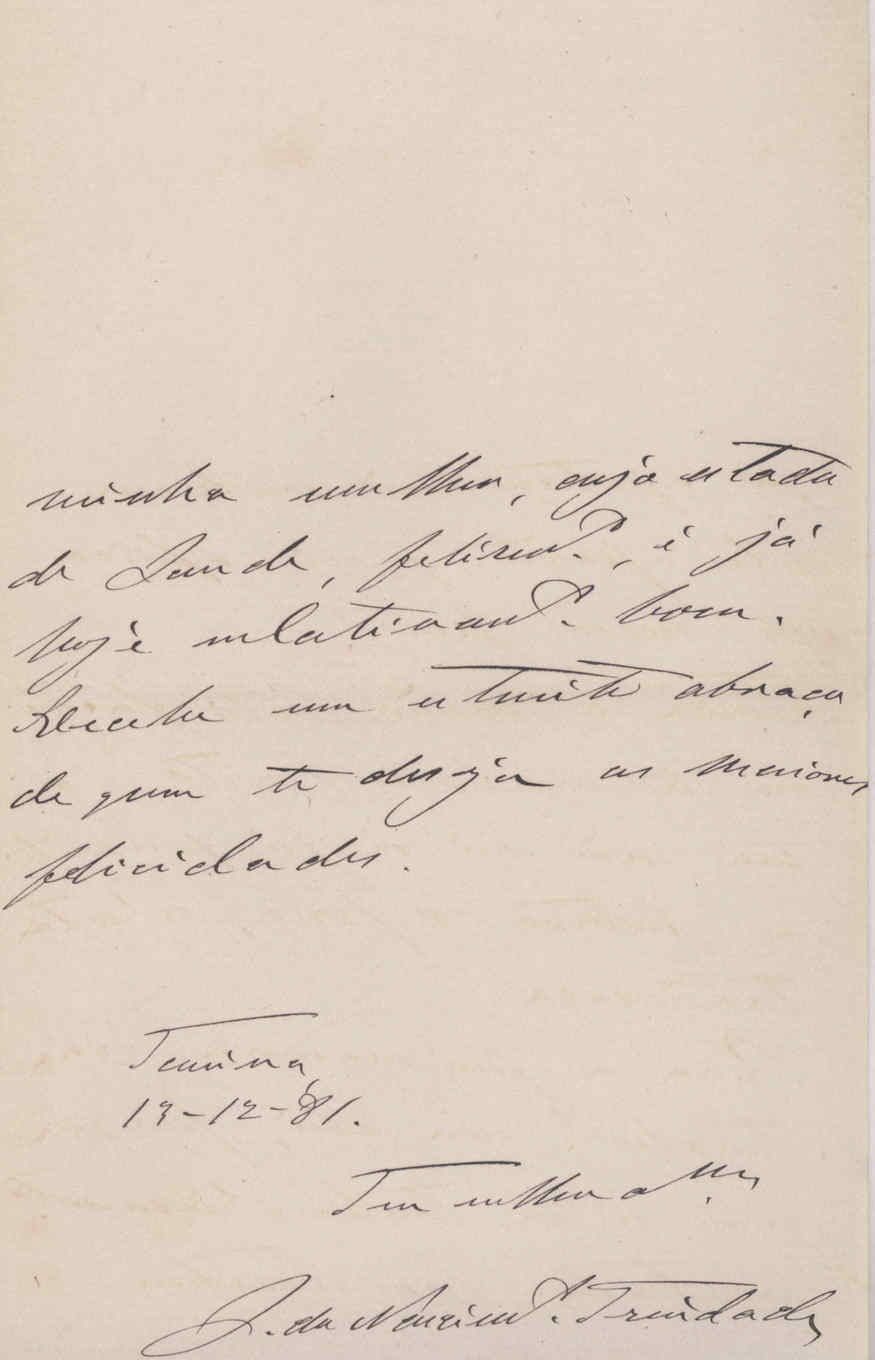 minha mulher, cujo estado
de saude, felism.te, é já
hoje relativam.te bom.
Recebe um estreito abraço
de quem te deseja as maiores
felicidades.
13-12-81.
Teu melhor am.º
J. do Nascim.to Trindade